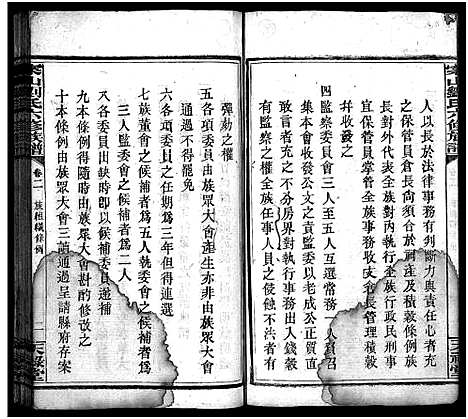 人以長於法律事務有興判力與責任心
管保管員倉長須同合於祠產及積穀條
長對外代表全族對族行政民刑事
宜保管員掌管全族契據倉長管理積穀
并收發之
四監察委員會三人至五人互選常務一人
集本會收發公文之責監委以老成公正
者充之不分房界對執行事務出入錢穀
有監察之權全族任事人員之侵蝕不法有
彈劾之權
五各項委員之產生亦非由族眾大會選
不通過不得罷免
六各項委員之任期為三年但得連選
七族董會之候補者為五人執委會之候補者為
三人監委會之候補者為二人
八各委員出缺時即以候補者
九本條例得隨時由族眾大會斟酌修改之
十本條例由族眾大會三讀通過呈請縣府存案
劉氏六修族譜
卷二
天祿堂